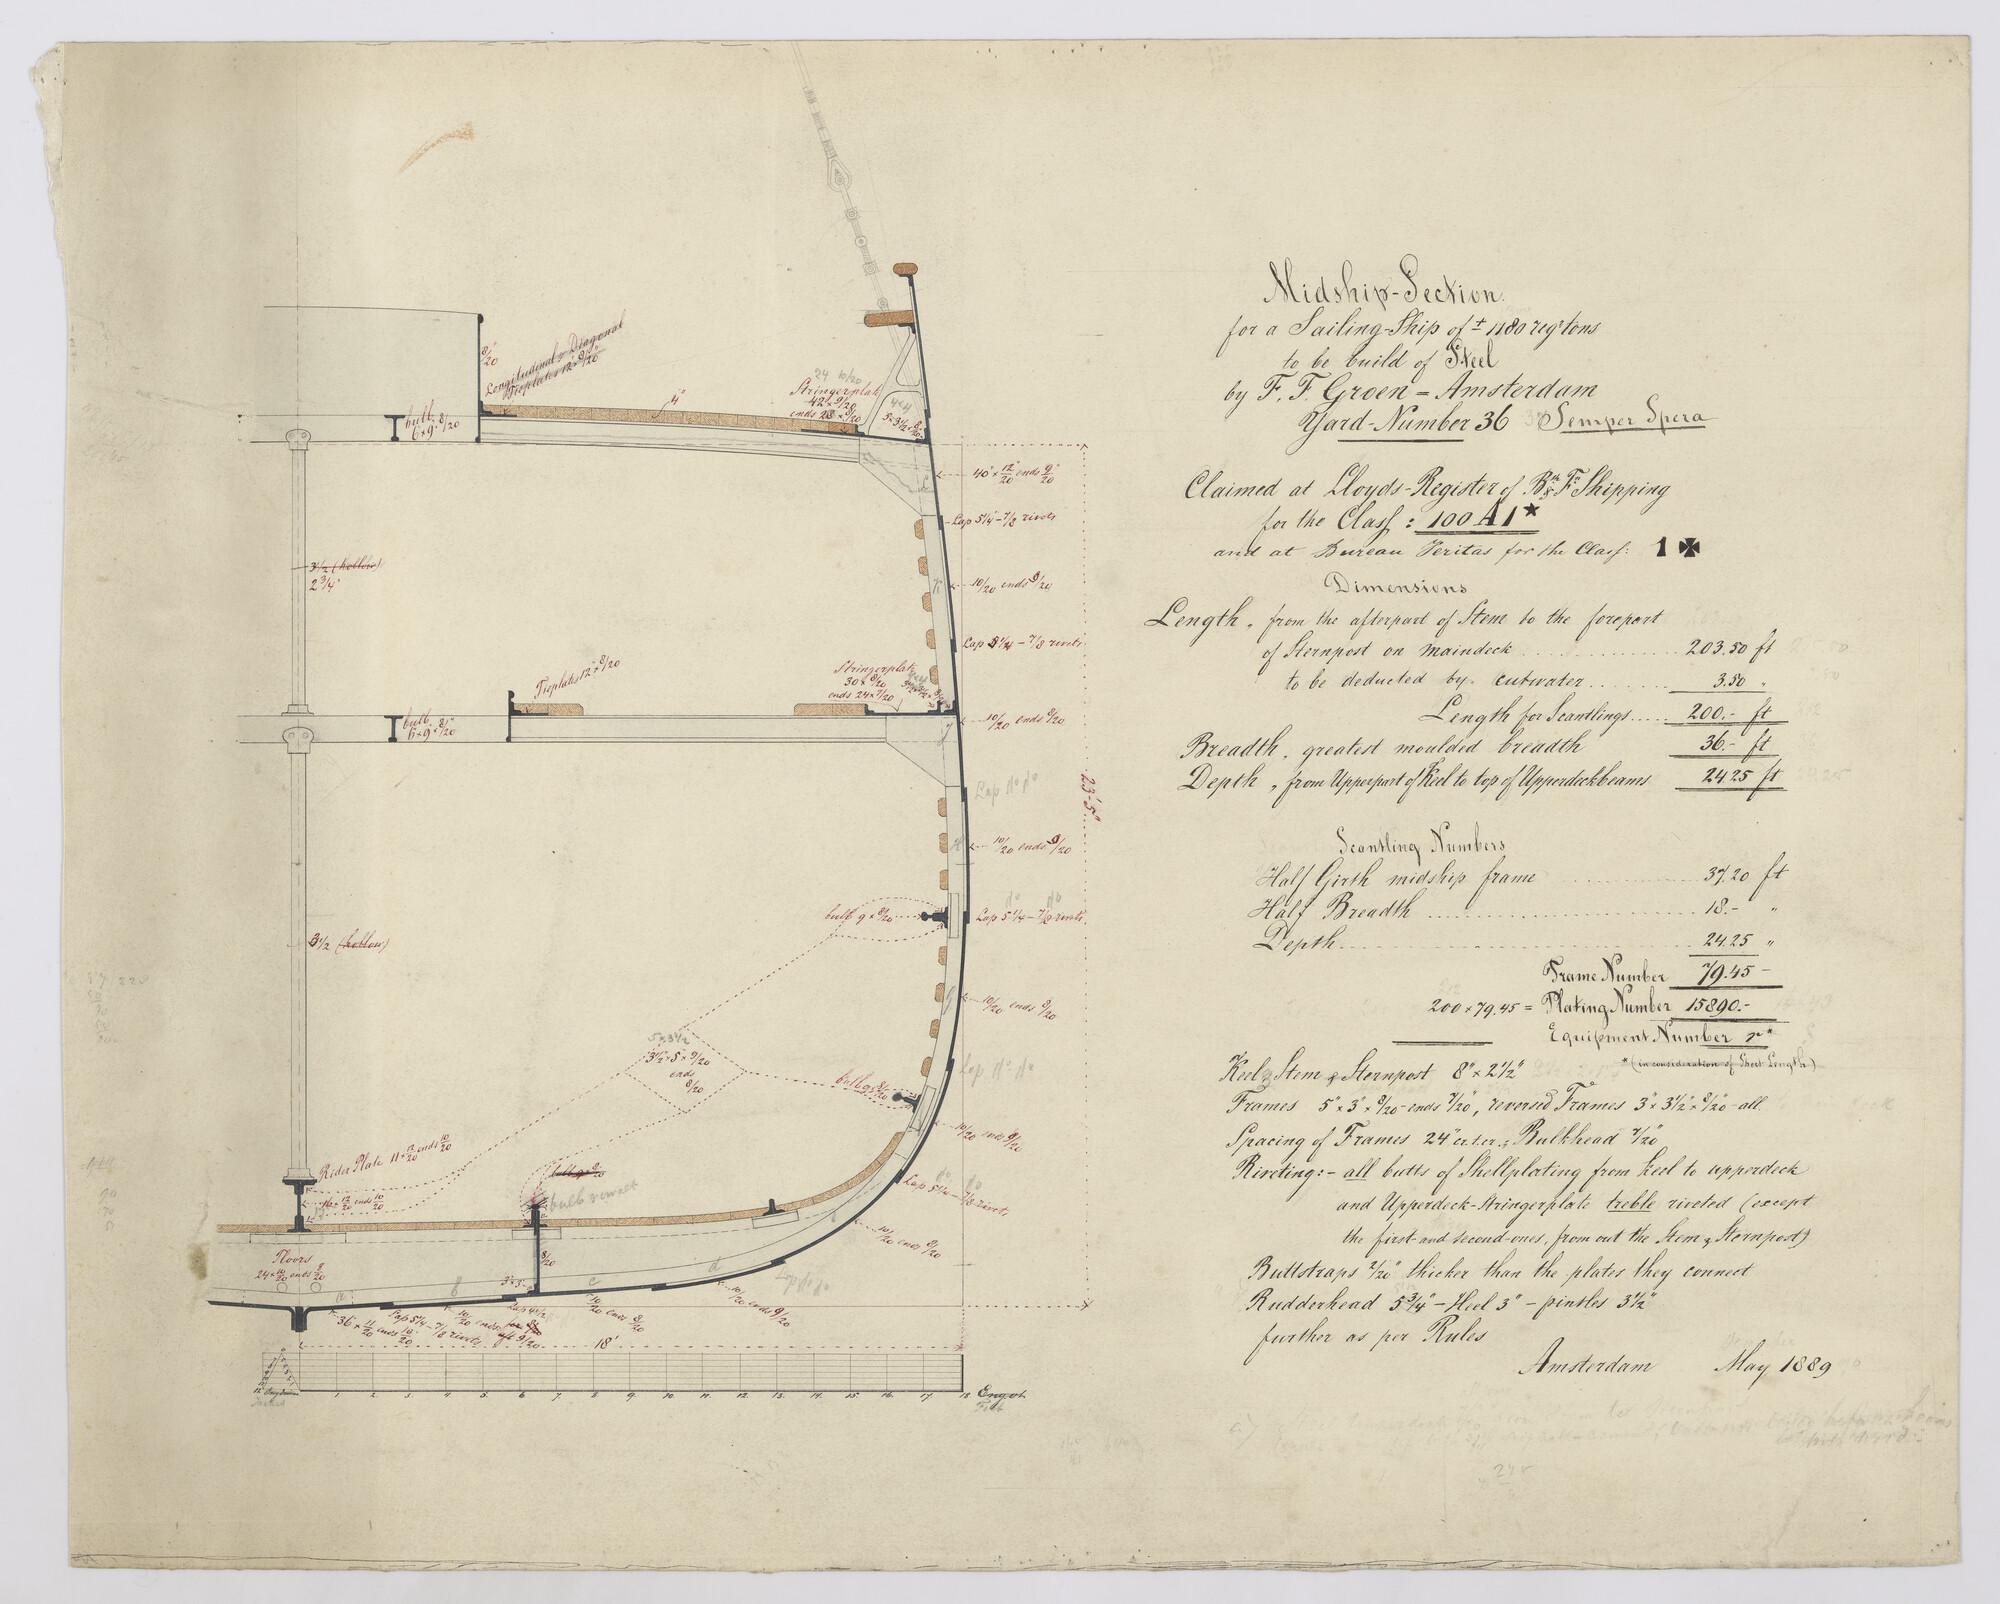 Midship-Section.
for a Sailing-Ship of ± 1180 regr tons
to be build of Steel
by F. F. Groen = Amsterdam
Yard-Number 36 Semper Spera
Claimed at Lloyds-Register of Brh & Fn Shipping
for the Class : 100 A 1*
and at Bureau Veritas for the Class: 1 ✠
Dimensions
Length, from the afterpart of Stem to the forepart
of Sternpost on maindeck 203.50 ft
to be deducted by cutwater 3.50 "
Length for Scantlings 200.- ft
Breadth, greatest moulded breadth 36.- ft
Depth, from Upperpart of Keel to top of Upperdeckbeams 24.25 ft
Scantling Numbers
Half Girth midship frame 37.20 ft
Half Breadth 18.- "
Depth 24.25 "
Frame Number 79.45 -
200 × 79.45 = Plating Number 15890.-
Equipment Number
*(in consideration of Sheet Length)
Keel, Stem & Sternpost 8" × 2 1/2"
Frames 5" × 3" × 8/20 - ends 7/20", reversed Frames 3" × 3 1/2" × 8/20" - all
Spacing of Frames 24" cr. t. cr. ; Bulkhead 7/20"
Riveting:- all butts of Shellplating from keel to upperdeck
and Upperdeck-Stringerplate treble riveted (except
the first and second-ones, from out the Stem & Sternpost)
Buttstraps 2/20" thicker than the plates they connect
Rudderhead 5 3/4" - Heel 3" - pintles 3 1/2"
further as per Rules
Amsterdam May 1889
Longitudinal & Diagonal
Tieplates 12" × 8/20"
8/20"
4"
24 10/20
Stringerplate
42 × 9/20
ends 28 × 8/20
4×4
bulb
6 × 9 · 8/20
40" × 12/20 ends 9/20"
Lap 5 1/4" - 7/8 rivets
3 1/2 (hollow)
2 3/4"
10/20 ends 8/20
Lap 5 1/4 - 7/8 rivets
Tieplates 12" × 8/20
Stringerplate
30 × 8/20
ends 24 × 7/20
bulb
6 × 9 · 8/20"
10/20 ends 8/20
23'-5"
Lap do do
10/20 ends 9/20
bulb 9 × 8/20
do do
Lap 5 1/4 - 7/8 rivets
3 1/2 (hollow)
10/20 ends 8/20
5 × 3 1/2
3 1/2 × 5 × 9/20
ends
8/20
Lap do do
bulb 9 × 8/20
10/20 ends 9/20
Rider Plate 11 × 12/20 ends 10/20
16 × 12/20 ends 10/20
bulb 9 × 8/20
Lap 5 1/4 - 7/8 rivets
10/20 ends 8/20
Floors
24 × 10/20 ends 8/20
8/20
3" × 3"
a b c d
Lap do do
36 × 11/20 ends 10/20
Lap 5 1/4 - 7/8 rivets
10/20 ends
aft 9/20
Lap 4 1/2
10/20 ends 8/20
10/20 ends 9/20
18'
12 1. 2. 3. 4. 5. 6. 7. 8. 9. 10. 11. 12. 13. 14. 15. 16. 17. 18.
Feet